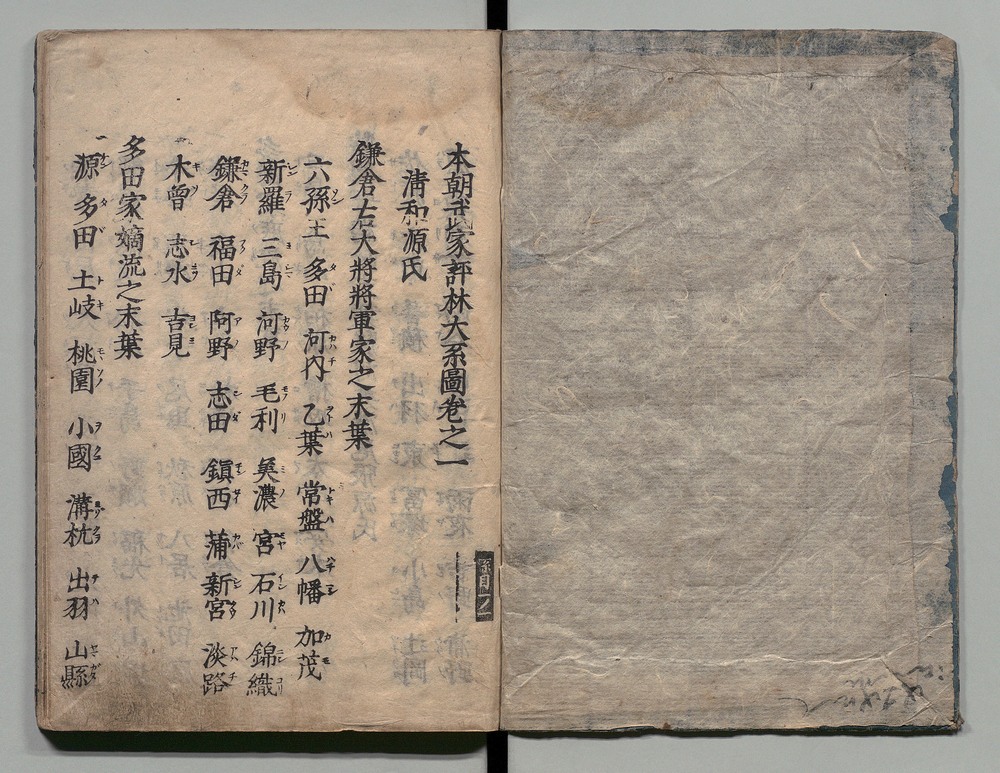 本朝武家評林大系圖卷之一
清和源氏
鎌倉右大將將軍家之末葉
六孫王 多田 河内 乙葉 常盤 八幡 加茂
新羅 三島 河野 毛利 美濃 宮 石川 錦織
鎌倉 福田 阿野 志田 鎭西 蒲 新宮 淡路
木曾 志水 吉見
多田家嫡流之末葉
源 多田 土岐 桃園 小國 溝杭 出羽 山縣
系目一ノ一